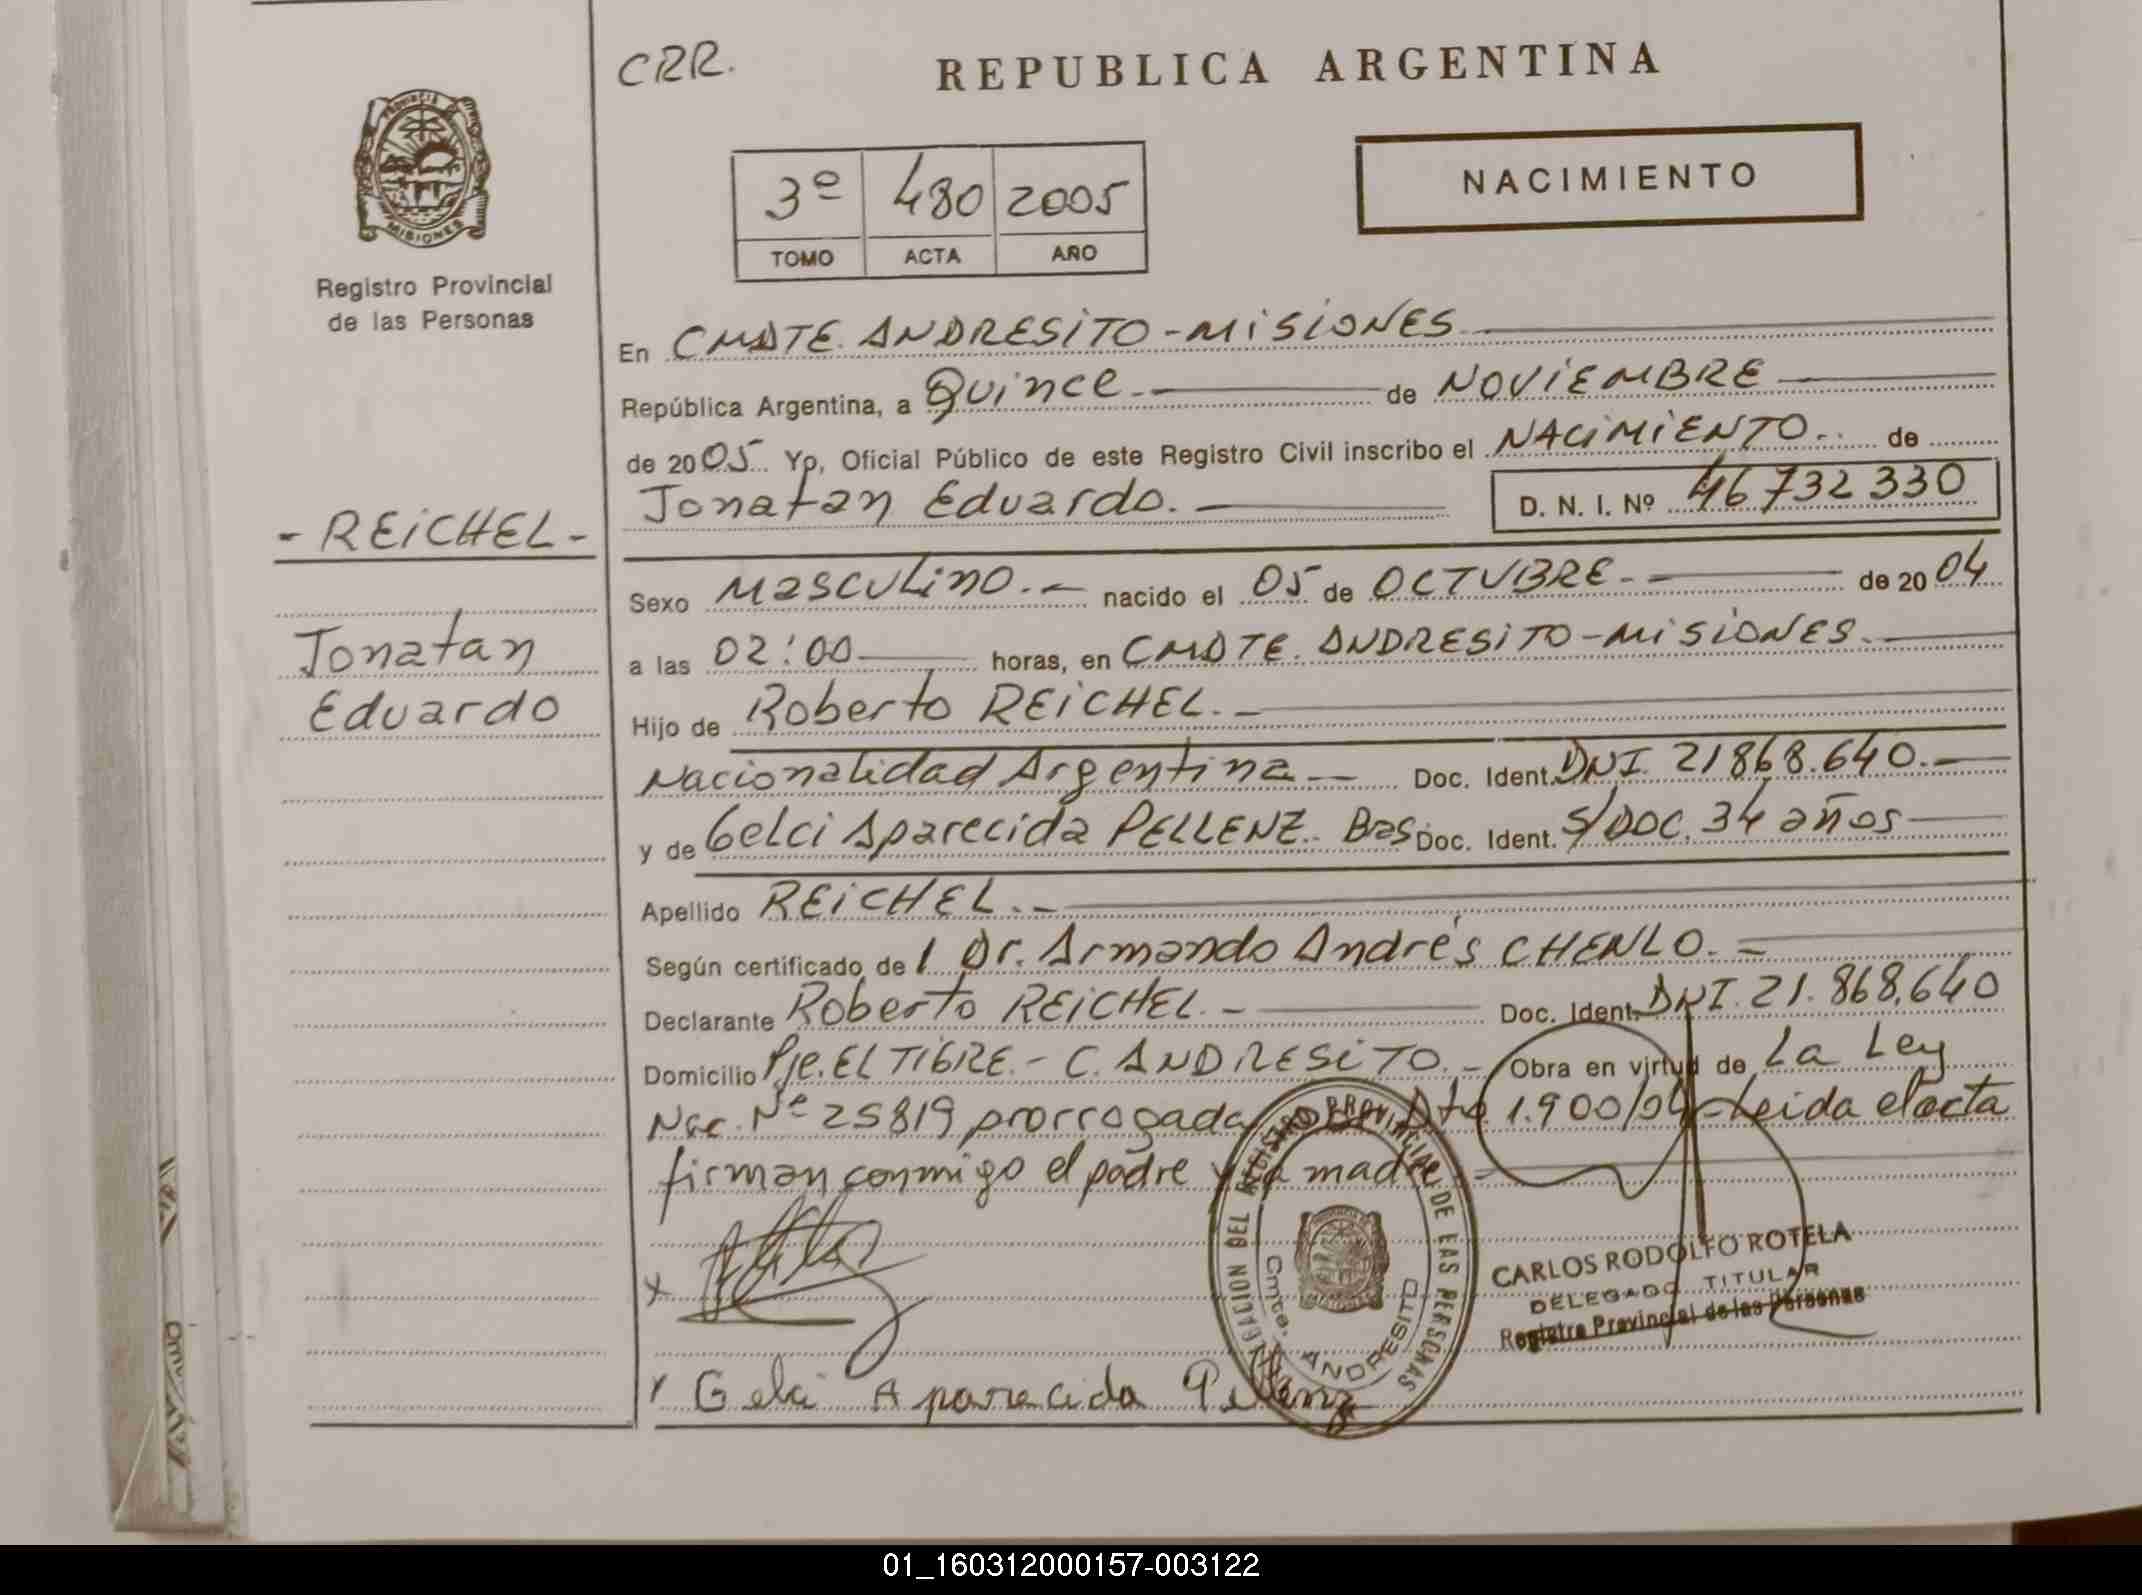 CRR.
REPUBLICA ARGENTINA
PROVINCIA DE
MISIONES
Registro Provincial
de las Personas
3º 480 2005
TOMO ACTA AÑO
NACIMIENTO
En CMDTE. ANDRESITO - MISIONES
República Argentina, a Quince. de NOVIEMBRE
de 2005 Yo, Oficial Público de este Registro Civil inscribo el NACIMIENTO.. de
Jonatan Eduardo. D. N. I. Nº 46732330
- REICHEL -
Jonatan
Eduardo
Sexo Masculino. nacido el 05 de OCTUBRE. de 2004
a las 02:00 horas, en CMDTE. ANDRESITO - MISIONES.
Hijo de Roberto REICHEL.
Nacionalidad Argentina Doc. Ident. DNI. 21868.640.
y de Gelci Aparecida PELLENZ. Bras. Doc. Ident. S/DOC. 34 años
Apellido REICHEL.
Según certificado de 1 Dr. Armando Andrés CHENLO.
Declarante Roberto REICHEL. Doc. Ident. DNI. 21.868.640
Domicilio Pje. EL TIGRE. - C. ANDRESITO. Obra en virtud de La Ley
Nac. Nº 25819 prorrogada por Dto. 1.900/04 - Leida el acta
firman conmigo el padre y la madre
DELEGACION DEL REGISTRO PROVINCIAL DE LAS PERSONAS
Cmte. ANDRESITO
CARLOS RODOLFO ROTELA
DELEGADO TITULAR
Registro Provincial de las Personas
x
Gelci Aparecida Pellenz
01_160312000157-003122